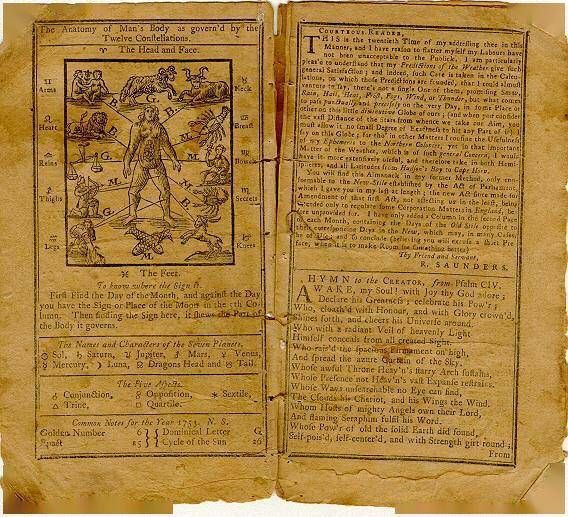 The Anatomy of Man's Body as govern'd by the
Twelve Constellations.
♈ The Head and Face.
♊ Arms
♌ Heart
♎ Reins
♐ Thighs
♒ Legs
♉ Neck
♋ Breast
♍ Bowels
♏ Secrets
♑ Knees
♓ The Feet.
To know where the Sign is.
First Find the Day of the Month, and against the Day
you have the Sign or Place of the Moon in the 5th Co-
lumn. Then finding the Sign here, it shews the Part of
the Body it governs.
The Names and Characters of the Seven Planets.
☉ Sol, ♄ Saturn, ♃ Jupiter, ♂ Mars, ♀ Venus,
☿ Mercury, ☽ Luna, ☊ Dragons Head and ☋ Tail.
The Five Aspects.
☌ Conjunction, ☍ Opposition, ⚹ Sextile,
△ Trine, □ Quartile.
Common Notes for the Year 1753. N. S.
Golden Number 6 } { Dominical Letter G
Epact 25 } { Cycle of the Sun 26
COURTEOUS READER,
THIS is the twentieth Time of my addressing thee in this
Manner, and I have reason to flatter myself my Labours have
not been unacceptable to the Publick. I am particularly
pleas'd to understand that my Predictions of the Weather give such
general Satisfaction; and indeed, such Care is taken in the Calcu-
lations, on which those Predictions are founded, that I could almost
venture to say, there's not a single One of them, promising Snow,
Rain, Hail, Heat, Frost, Fogs, Wind, or Thunder, but what comes
to pass punctually and precisely on the very Day, in some Place or
other on this little diminutive Globe of ours; (and when you consider
the vast Distance of the Stars from whence we take our Aim, you
must allow it no small Degree of Exactness to hit any Part of it) I
say on this Globe; for tho' in other Matters I confine the Usefulness
of my Ephemeris to the Northern Colonies, yet in that important
Matter of the Weather, which is of such general Concern, I would
have it more extensively useful, and therefore take in both Hemi-
spheres, and all Latitudes from Hudson's Bay to Cape Horn.
You will find this Almanack in my former Method, only con-
formable to the New-Stile established by the Act of Parliament,
which I gave you in my last at length; the new Act since made for
Amendment of that first Act, not affecting us in the least, being
intended only to regulate some Corporation Matters in England, be-
fore unprovided for. I have only added a Column in the second Page
of each Month, containing the Days of the Old Stile opposite to
their corresponding Days in the New, which may, in many Cases,
be of Use; and so conclude (believing you will excuse a short Pre-
face, when it is to make Room for something better)
Thy Friend and Servant,
R. SAUNDERS.
HYMN to the CREATOR, from Psalm CIV.
AWAKE, my Soul! with Joy thy God adore;
Declare his Greatness; celebrate his Pow'r;
Who, cloath'd with Honour, and with Glory crown'd,
Shines forth, and cheers his Universe around.
Who with a radiant Veil of heavenly Light
Himself conceals from all created Sight.
Who rais'd the spacious Firmament on high,
And spread the azure Curtain of the Sky.
Whose awful Throne Heav'n's starry Arch sustains,
Whose Presence not Heav'n's vast Expanse restrains.
Whose Ways unsearchable no Eye can find,
The Clouds his Chariot, and his Wings the Wind.
Whom Hosts of mighty Angels own their Lord,
And flaming Seraphim fulfil his Word.
Whose Pow'r of old the solid Earth did found,
Self-pois'd, self-center'd, and with Strength girt round;
From